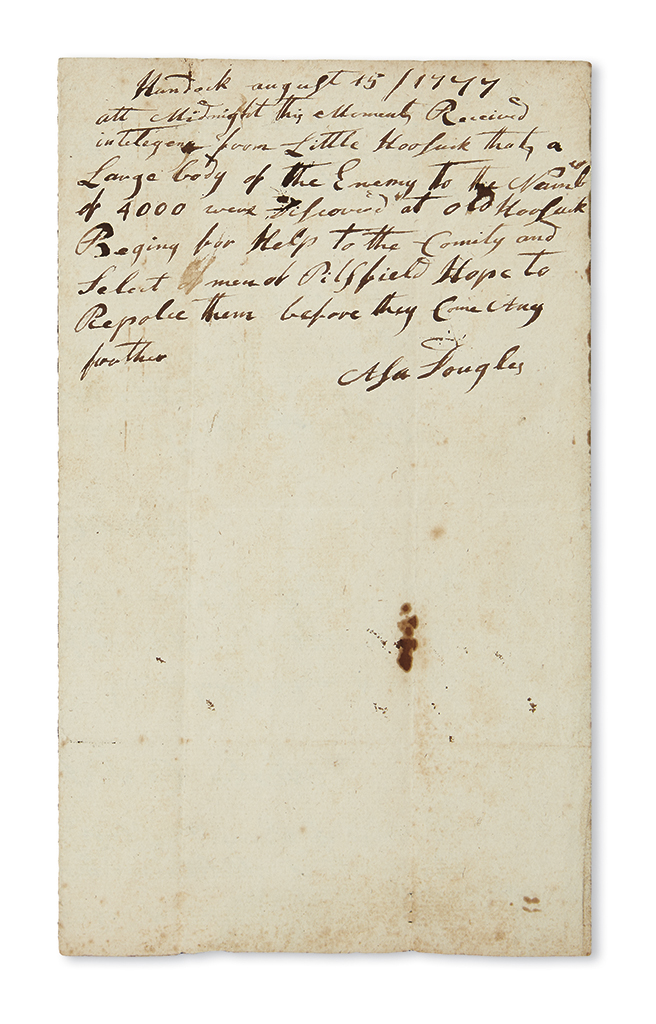 Handcock august 15 / 1777
att Midnight this Moment Received
intelegenc from Little Hoosuck that a
Large body of the Enemy to the Numbr
of 4000 were Discoverd at old Hoosuck
Beging for Help to the Comity and
Select men of Pittsfield Hope to
Repolce them before they Come Any
forther
Asa Douglas